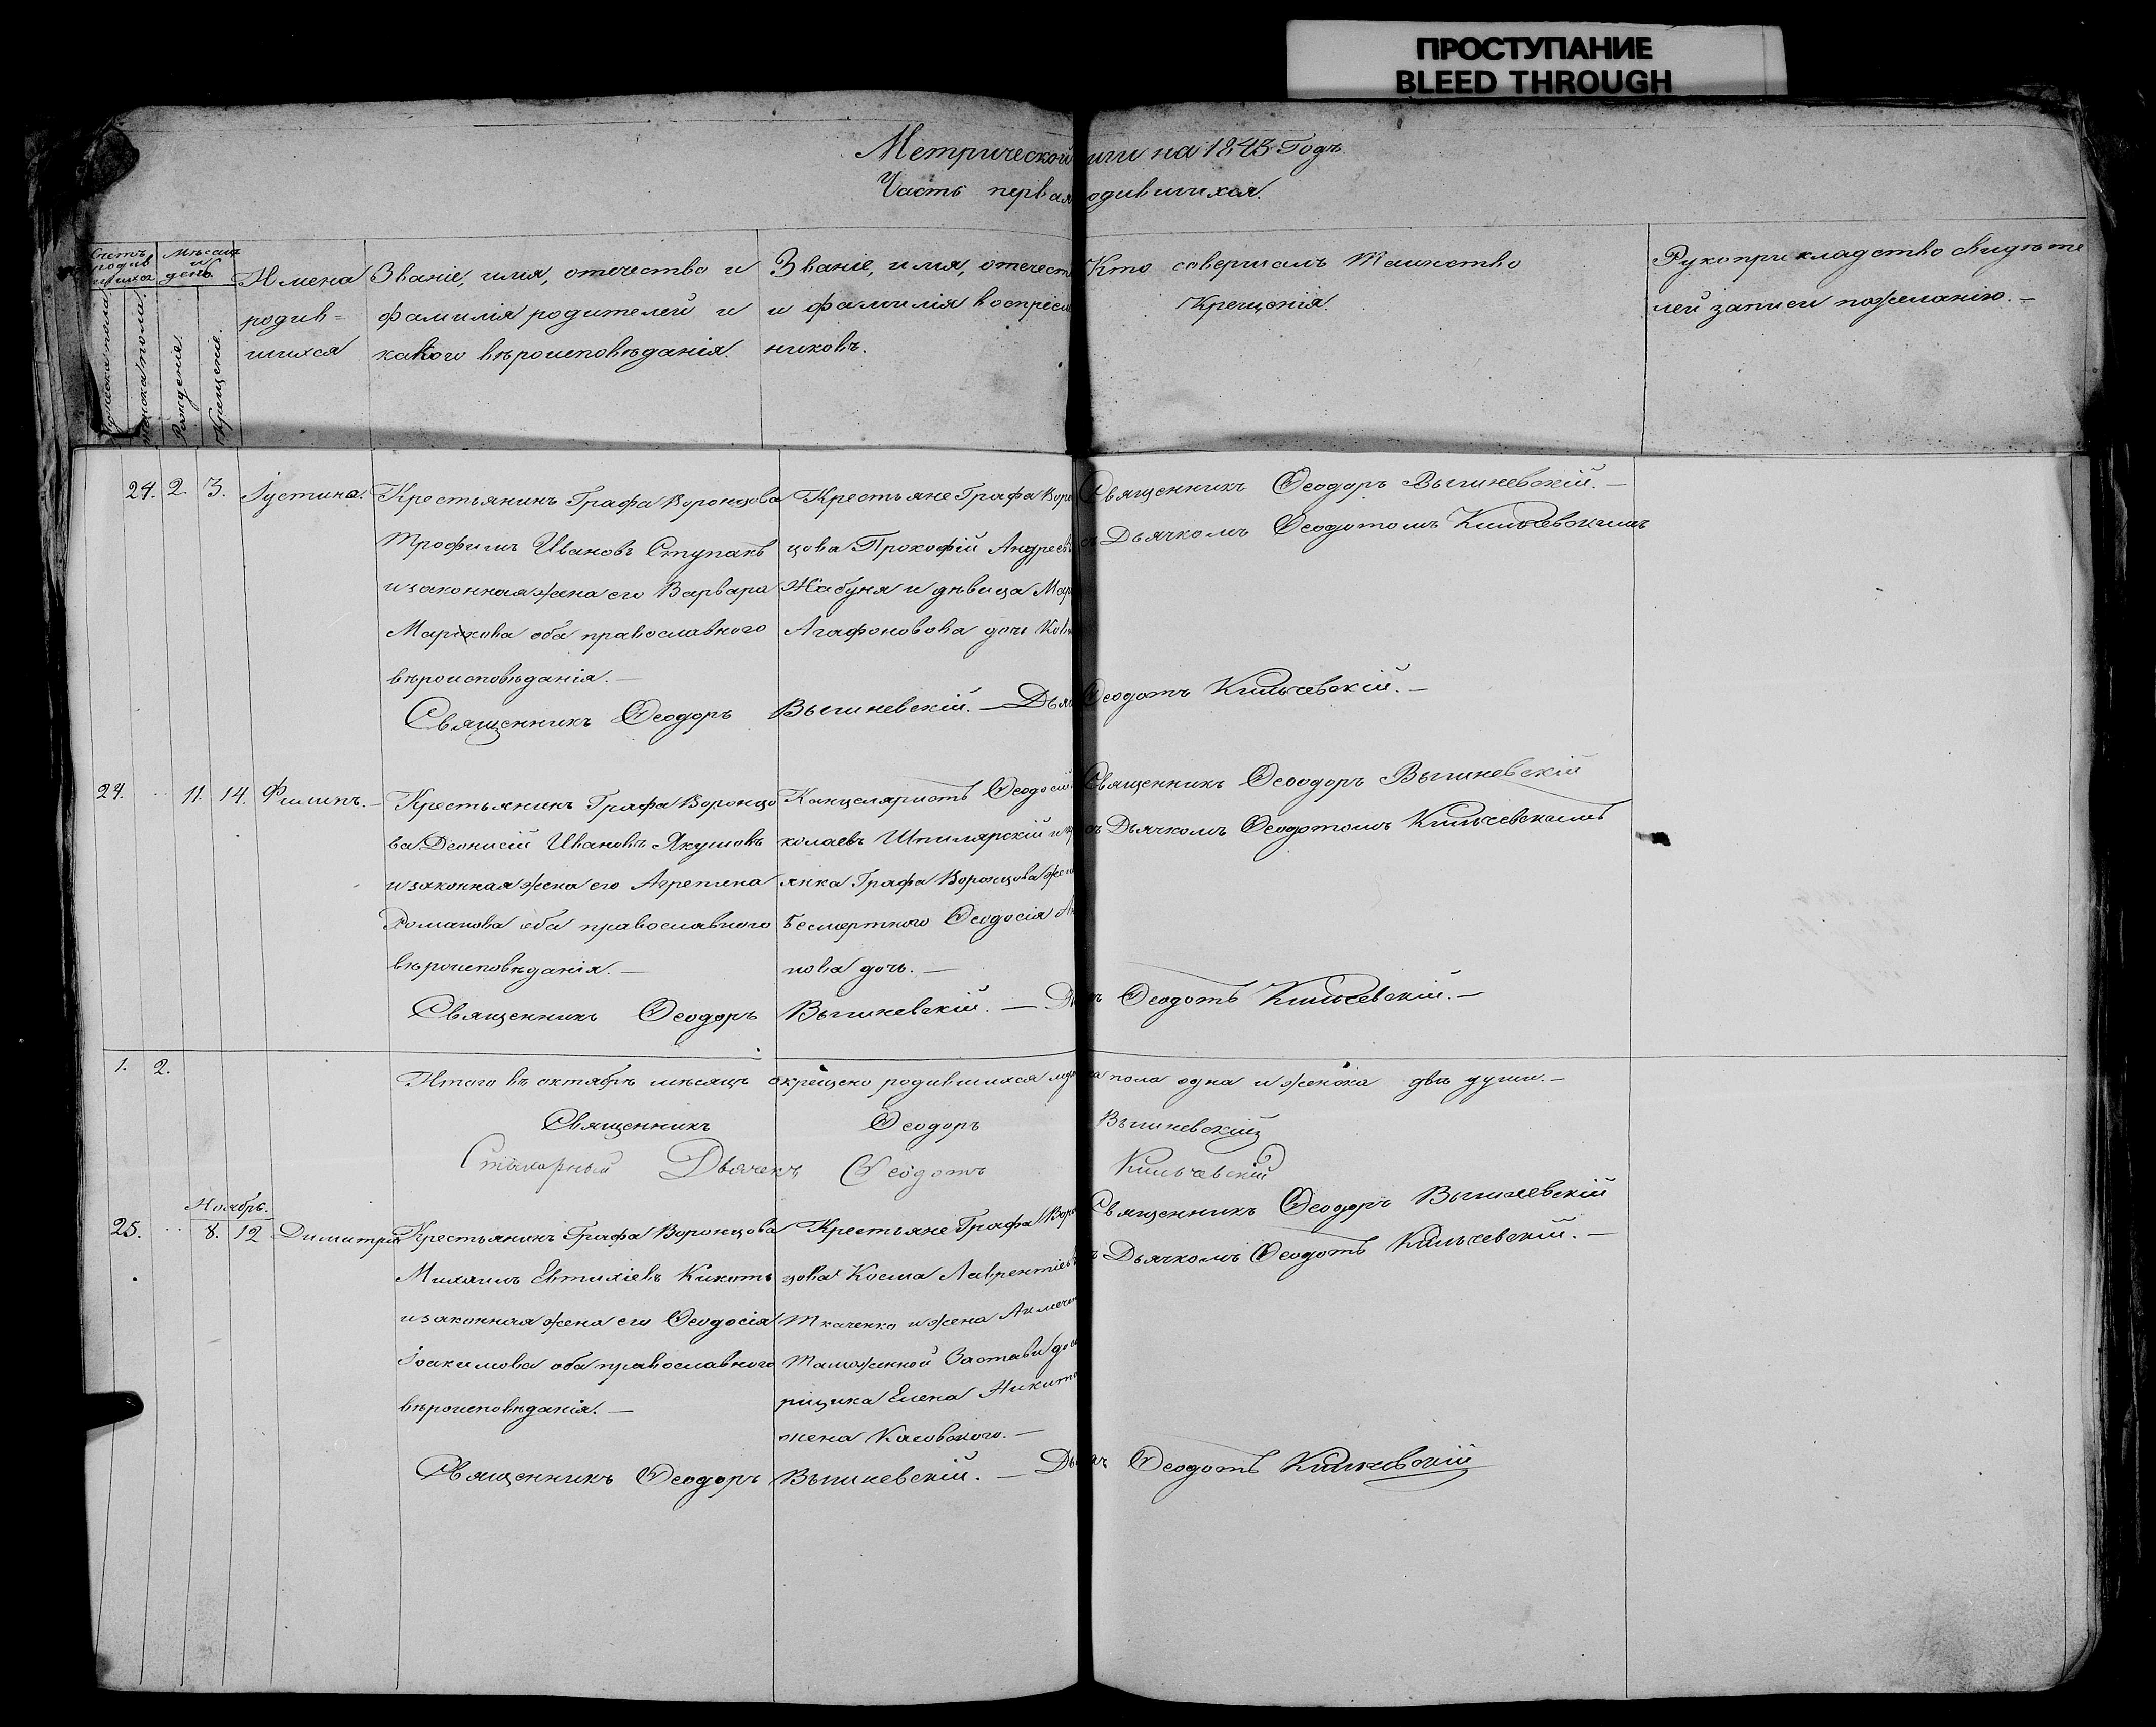 ПРОСТУПАНИЕ
BLEED THROUGH
Метрической иги на 1845 Годъ
Часть первая одившихся.
Счетъ родив шихся
Мѣсяцъ и день.
мужеска пола
женска пола
Рожденіе.
Крещеніе.
Имена
родив=
шихся
Званіе, имя, отечество и
фамилія родителей и
какого вѣроисповѣданія.
Званіе, имя, отечест
и фамилія воспріем
никовъ.
Кто совершалъ Таинство
Крещенія.
Рукоприкладство свидѣте
лей записи по желанію.—
24. 2. 3. Іустина.
Крестьянинъ Графа Воронцова
Трофимъ Ивановъ Ступакъ
и законная жена его Варвара
Маркова оба православного
вѣроисповѣданія.—
Крестьяне Графа Ворон
цова Прокофій Андреевъ
Жабуня и дѣвица Мар
Агафоновова дочь
Священникъ Ѳеодоръ Вышневскій.—
съ Дьячкомъ Ѳеодотомъ Кильчевскимъ
Священникъ Ѳеодоръ Вышневскій.— Дьяч Ѳеодотъ Кильчевскій.—
24. .. 11. 14. Филипъ.—
Крестьянинъ Графа Воронцо
ва Деонисій Ивановъ Якушовъ
и законная жена его Агрепена
Романова оба православного
вѣроисповѣданія.—
Канцеляристъ Ѳеодосій
колаевъ Шпилярскій и кр
янка Графа Воронцова жен
Бесмертного Ѳеодосія
нова дочь.—
Священникъ Ѳеоодоръ Вышневскій
съ Дьячкомъ Ѳеодотомъ Кильчевскимъ
Священникъ Ѳеодоръ Вышневскій.— Дь ъ Ѳеодотъ Кильчевскій.—
1. 2.
Итого въ октябрѣ мѣсяцѣ окрещено родившихся муж ка пола одна и женска двѣ души.—
Священникъ Ѳеодоръ Вышневскій
Стихарный Дьячекъ Ѳеодотъ Кильчевскій
Ноябрь.
25. .. 8. 12 Димитрій
Крестьянинъ Графа Воронцова
Михаилъ Евтихіевъ Кикоть
и законная жена его Ѳеодосія
Іоакимова оба православного
вѣроисповѣданія.—
Крестьяне Графа Ворон
цова Косма Лаврентіевъ
Ткаченко и жена
Таможенной Застави дос
рщика Елена Никито
жена Касовского.—
Священникъ Ѳеодоръ Вышневскій
ъ Дьячкомъ Ѳеодотъ Кильчевскій.—
Священникъ Ѳеодоръ Вышневскій.— Дья чъ Ѳеодотъ Кильчевскій